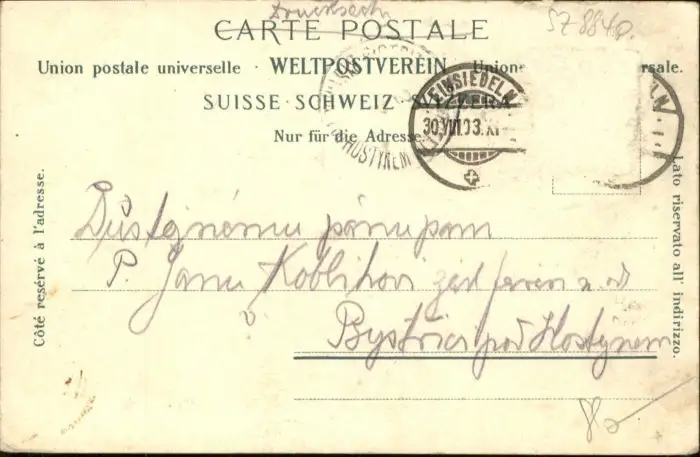 Drucksach
CARTE POSTALE
SZ 8840.
Union postale universelle · WELTPOSTVEREIN · Union rsale.
SUISSE · SCHWEIZ · SVIZZERA
Nur für die Adresse.
EINSIEDELN
30.VIII.03.XI
HOSTÝNEM
LN
Côté resérvé à l'adresse.
Lato riservato all' indirizzo.
Důstojnému pánu panu
P. Janu Koblihovi
Bystřici pod Hostýnem